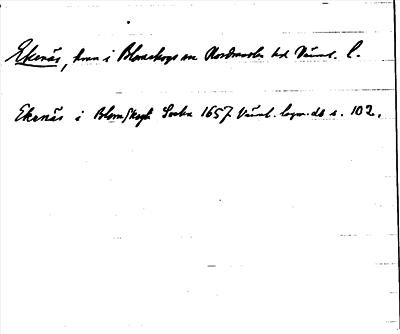 Ekenäs, hmn i Blomskogs sn Nordmarks hd Värml. l.
Ekenäs i Blomskogs Sockn 1657 Värml. lagm.db s. 102.